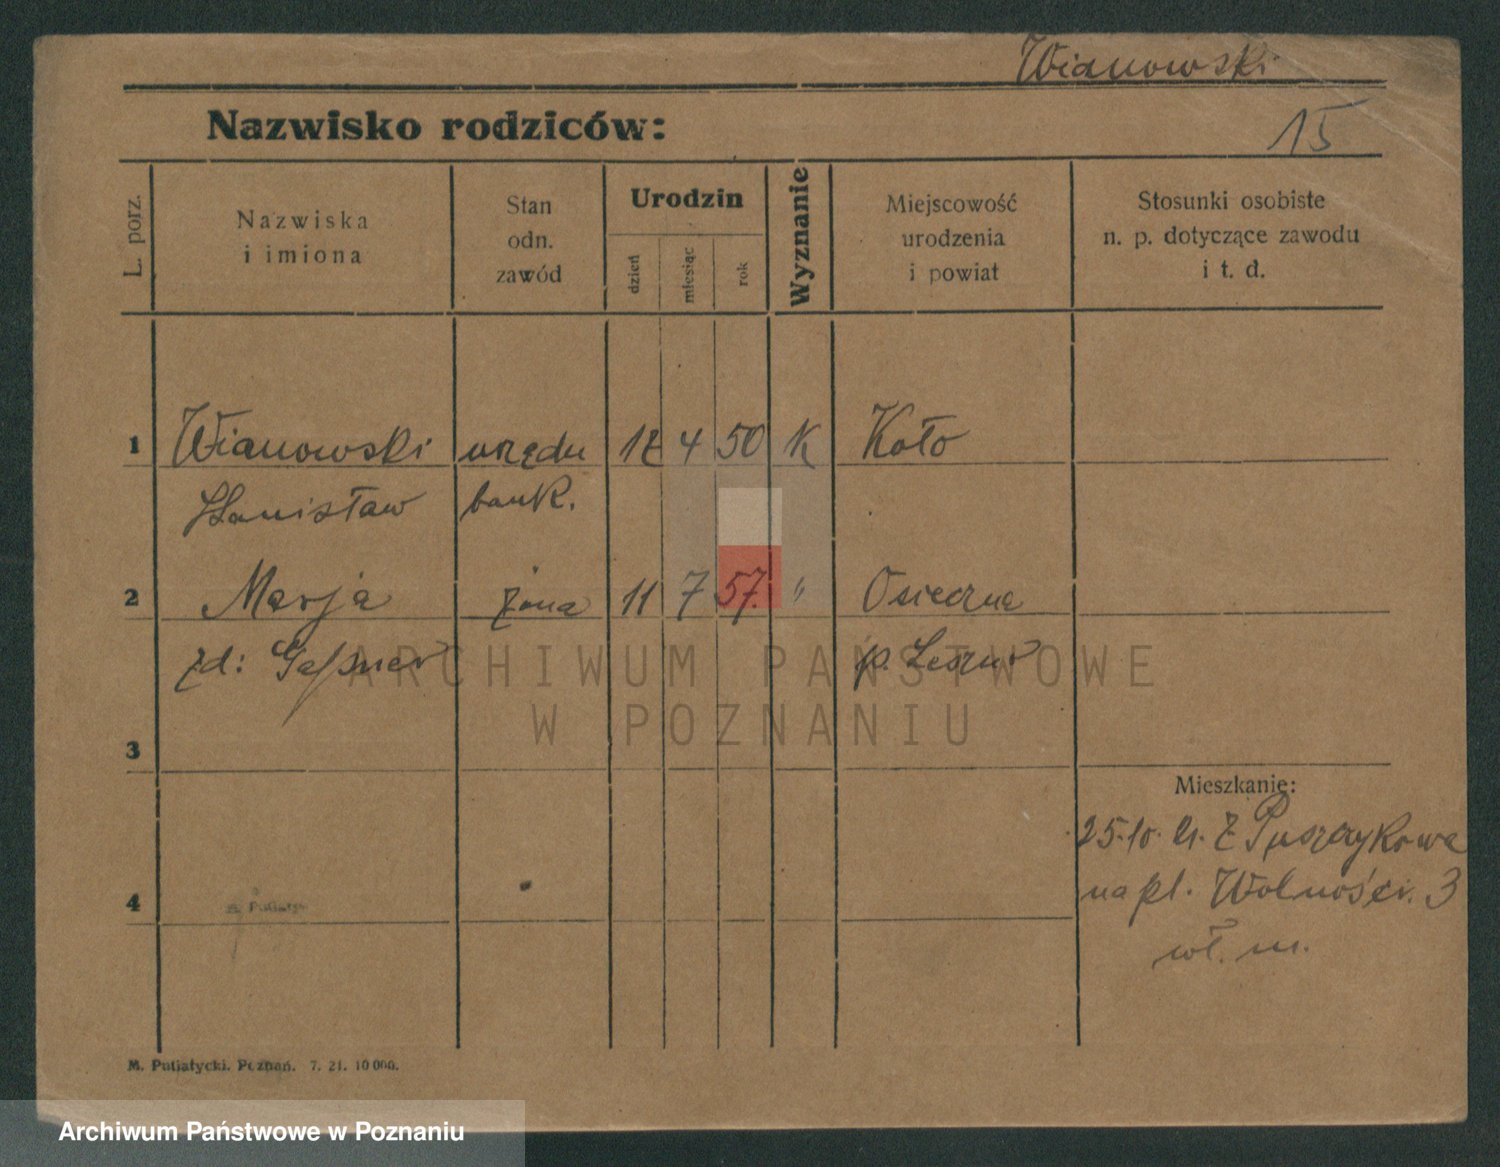 Wianowski
Nazwisko rodziców:
15
L. porz.
Nazwiska
i imiona
Stan
odn.
zawód
Urodzin
dzień
miesiąc
rok
Wyznanie
Miejscowość
urodzenia
i powiat
Stosunki osobiste
n. p. dotyczące zawodu
i t. d.
1 Wianowski urzędn 12 4 50 K Koło
Stanisław bank.
2 Marja żona 11 7 57. " Osieczna
zd: Geſsner p. Leszno
ARCHIWUM PAŃSTWOWE
W POZNANIU
3
Mieszkanie:
25.10.21. Z Puszczykowa
na pl. Wolności. 3
4
wł. m.
M. Putiatycki. Poznań. 7. 21. 10 000.
Archiwum Państwowe w Poznaniu